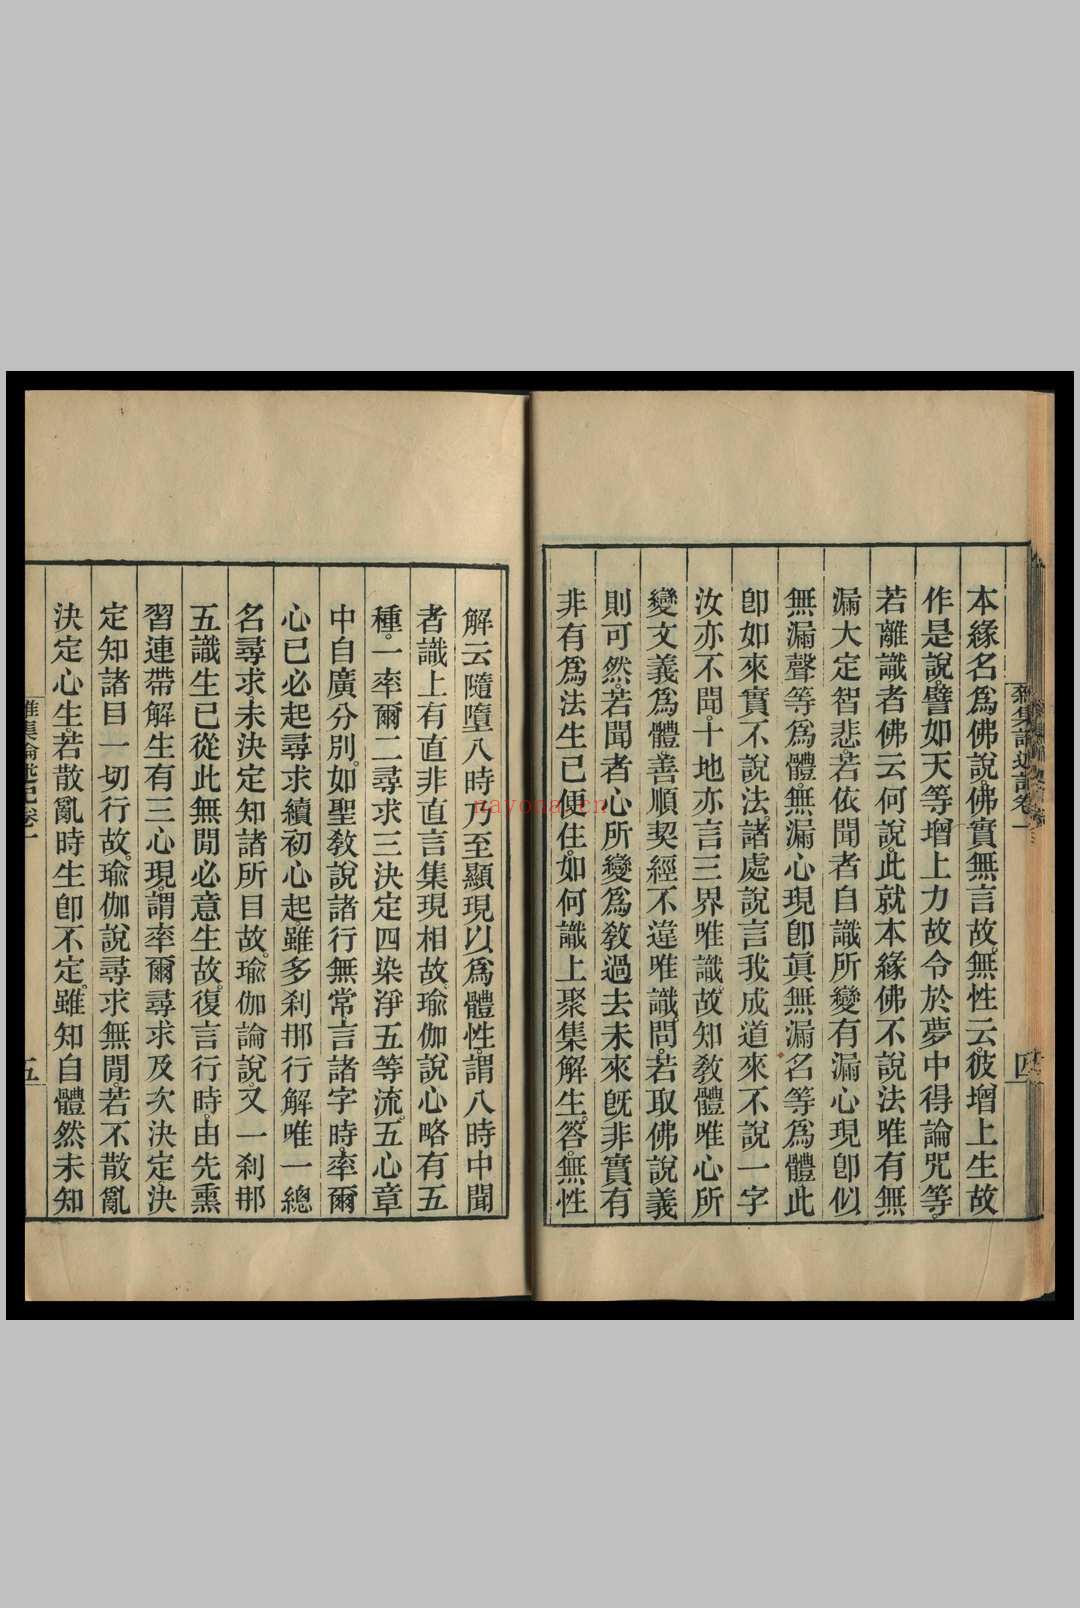 本緣名爲佛說。佛實無言故。無性云。彼增上生故
作是說。譬如天等增上力故令於夢中得論呪等。
若離識者佛云何說。此就本緣佛不說法唯有無
漏大定智悲。若依聞者自識所變有漏心現卽似
無漏聲等爲體。無漏心現卽眞無漏名等爲體此
卽如來實不說法。諸處說言我成道來不說一字
汝亦不聞。十地亦言三界唯識。故知敎體唯心所
變文義爲體。善順契經不違唯識。問。若取佛說義
則可然。若聞者心所變爲敎過去未來旣非實有
非有爲法生已便住。如何識上聚集解生。答。無性
解云隨墮八時乃至顯現以爲體性。謂八時中聞
者識上有直非直言集現相故。瑜伽說心略有五
種。一率爾二尋求三決定四染淨五等流。五心章
中自廣分別。如聖敎說諸行無常言諸字時。率爾
心已必起尋求續初心起。雖多刹那行解唯一總
名尋求。未決定知諸所目故。瑜伽論說。又一刹那
五識生已從此無閒必意生故。復言行時。由先熏
習連帶解生有三心現。謂率爾尋求及次決定。決
定知諸目一切行故。瑜伽說尋求無閒。若不散亂
決定心生。若散亂時生卽不定。雖知自體然未知
雜集論述記卷一
五
nayona.cn